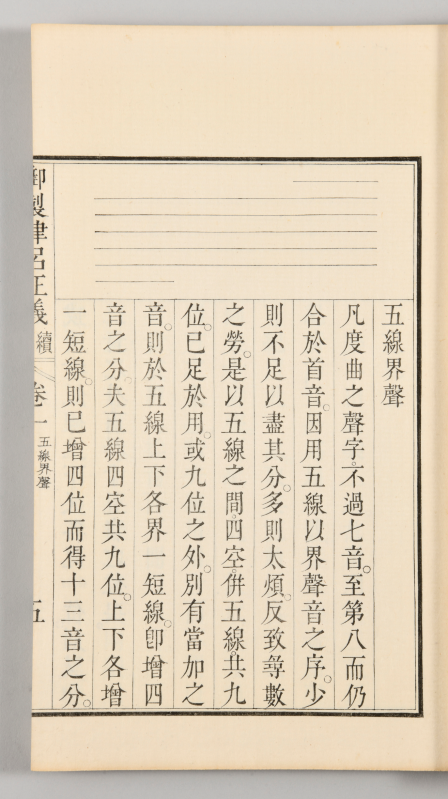 五線界聲
凡度曲之聲字。不過七音。至第八而仍
合於首音。因用五線以界聲音之序。少
則不足以盡其分。多則太煩。反致尋數
之勞。是以五線之間。四空。併五線。共九
位。已足於用。或九位之外。別有當加之
音。則於五線上下各界一短線。卽增四
音之分。夫五線四空共九位。上下各增
一短線。則已增四位而得十三音之分。
御製律呂正義
續
卷一
五線界聲
五